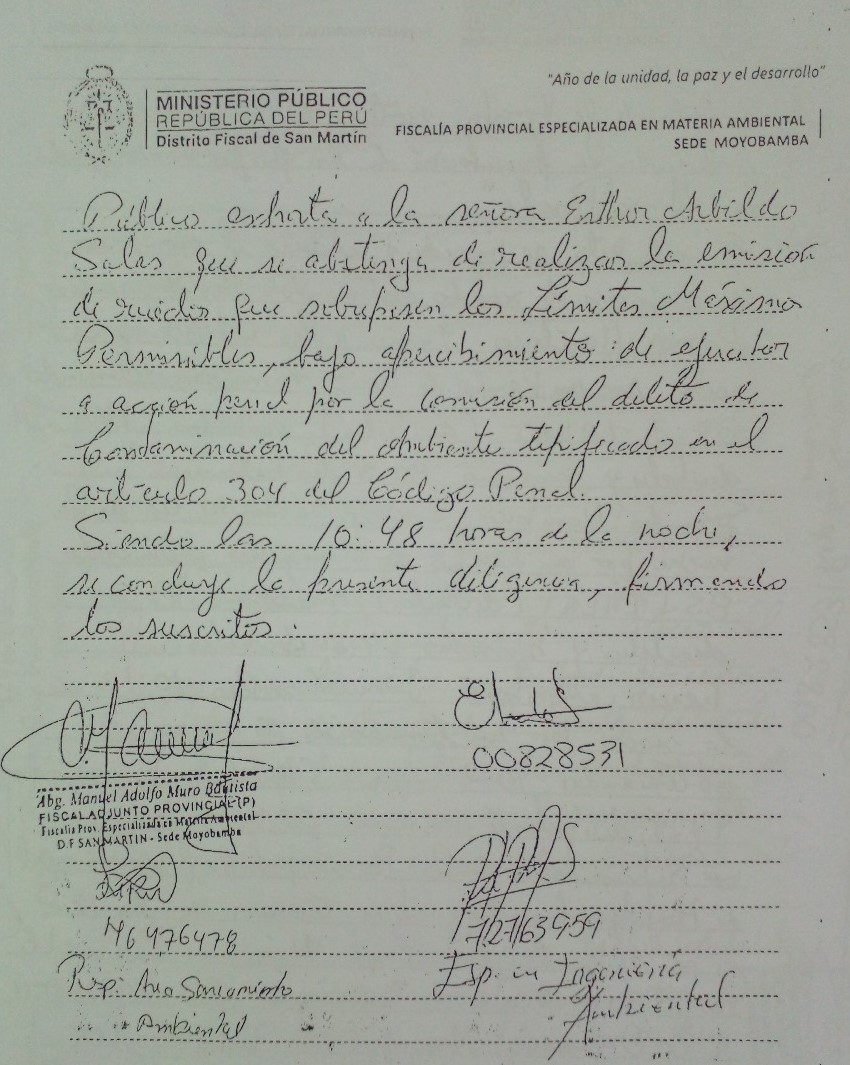 "Año de la unidad, la paz y el desarrollo"
MINISTERIO PÚBLICO
REPÚBLICA DEL PERÚ
Distrito Fiscal de San Martín
FISCALÍA PROVINCIAL ESPECIALIZADA EN MATERIA AMBIENTAL
SEDE MOYOBAMBA
Público exhorta a la señora Esther Arbildo
Salas que se abstenga de realizar la emisión
de ruidos que sobrepasen los Límites Máximo
Permisibles, bajo apercibimiento de ejecutar
a acción penal por la comisión del delito de
Contaminación del ambiente tipificado en el
artículo 304 del Código Penal.
Siendo las 10:48 horas de la noche,
se concluye la presente diligencia, firmando
los suscritos.
00828531
Abg. Manuel Adolfo Muro Bautista
FISCAL ADJUNTO PROVINCIAL (P)
Fiscalía Prov. Especializada en Materia Ambiental
D.F SAN MARTIN - Sede Moyobamba
46476478
72763959
Resp. Area Saneamiento
Ambiental
Esp. en Ingeniería
Ambiental